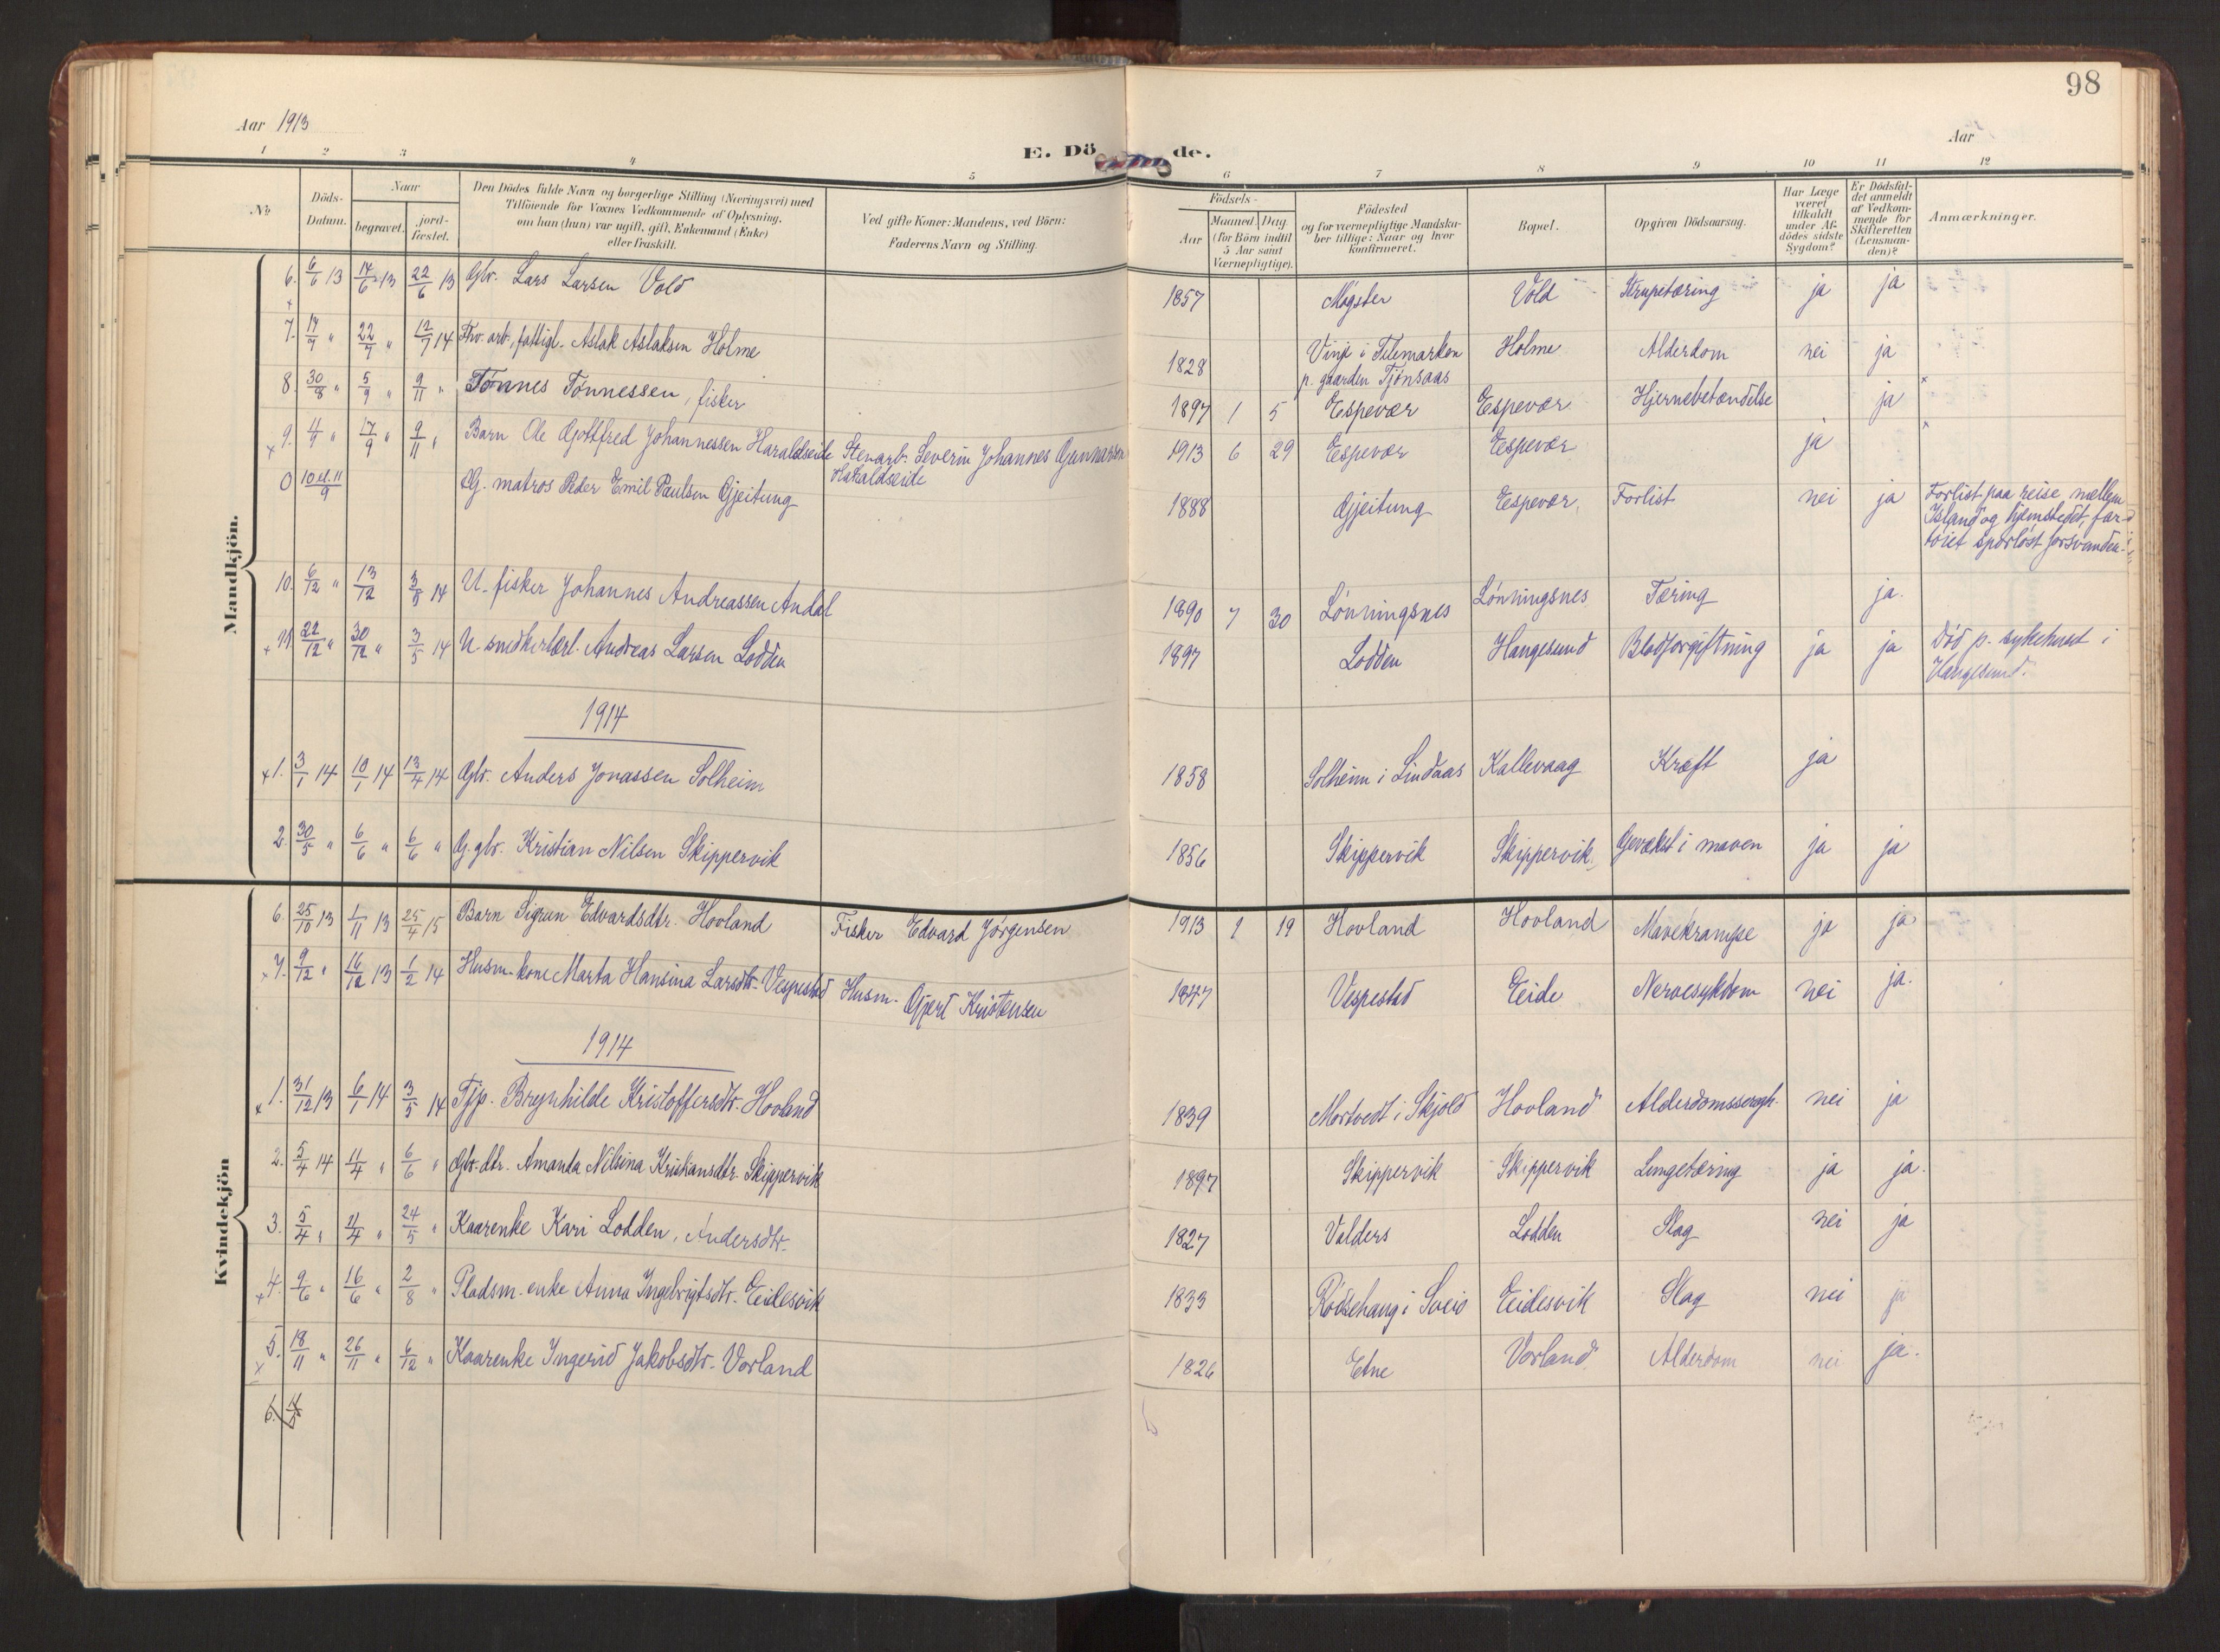 98
Aar 1913
Aar
E. Dö de.
1 2 3 4 5 6 7 8 9 10 11 12
No
Döds-
Datum.
Naar
begravet.
jord-
fæstet.
Den Dödes fulde Navn og borgerlige Stilling (Næringsvei) med
Tilföiende for Voxnes Vedkommende af Oplysning,
om han (hun) var ugift, gift, Enkemand (Enke)
eller fraskilt.
Ved gifte Koner: Mandens, ved Börn:
Faderens Navn og Stilling.
Födsels-
Aar
Maaned. Dag
(for Börn indtil
5 Aar samt
Værnepligtige).
Födested
og for værnepligtige Mandska-
ber tillige: Naar og hvor
konfirmeret.
Bopæl.
Opgiven Dödsaarsag.
Har Læge
været
tilkaldt
under Af-
dödes sidste
Sygdom?
Er Dödsfal-
det anmeldt
af Vedkom-
mende for
Skifteretten
(Lensman-
den)?
Anmærkninger.
Mandkjön.
6. 6/6 13 14/6 13 22/6 13 Gbr. Lars Larsen Vold 1857 Møgster Vold Strupetæring ja ja
7. 17/7 " 22/7 " 12/7 14 Fhv. arb., fattigl. Aslak Aslaksen Holme 1828 Vinje i Telemarken
p. gaarden Tjønsaas Holme Alderdom nei ja
8. 30/8 " 5/9 " 9/11 " Tønnes Tønnessen, fisker 1897 1 5 Espevær Espevær Hjernebetændelse ja x
x 9. 4/9 " 17/9 " 9/11 " Barn Ole Gottfred Johannessen Haraldseide Stenarb. Severin Johannes Gunnarsen
Haraldseide 1913 6 29 Espevær Espevær ja x
0 10 el. 11/9 G. matros Peder Emil Paulsen Gjeitung 1888 Gjeitung Espevær. Forlist nei ja Forlist paa reise mellem
Island og hjemstedet, far-
töiet sporløst forsvunden.
10. 6/12 " 13/12 3/5 14 U. fisker Johannes Andreassen Andal 1890 7 30 Lønningsnes Lønningsnes Tæring ja.
x 11. 22/12 " 30/12 " 3/5 14 U. snedkerlærl. Andreas Larsen Lodden 1897 Lodden Haugesund Blodforgiftning ja ja Död p. sykehuset i
Haugesund.
1914
x 1. 3/1 14 10/1 14 13/4 14 Gbr. Anders Jonassen Solheim 1858 Solheim i Lindaas Kallevaag Kræft ja
2. 30/5 " 6/6 " 6/6 " G. gbr. Kristian Nilsen Skippervik 1856 Skippervik Skippervik. Gevækst i maven ja ja
Kvindekjön
6. 25/10 13 1/11 13 25/4 15 Barn Sigrun Edvardsdtr. Hovland Fisker Edvard Jørgensen 1913 1 19 Hovland Hovland Mavekrampe ja ja
x 7. 9/12 " 16/12 13 1/2 14 Husm. kone Marta Hansina Larsdtr. Vespestad Husm. Gjert Kristensen 1847 Vespestad Eide Nervesykdom nei ja.
1914
x 1. 31/12 13 6/1 14 3/5 14 Tjp. Brynhilde Kristoffersdtr. Hovland 1839 Mortvedt i Skjold Hovland Alderdomssvagh. nei ja
2. 5/4 14 11/4 " 6/6 " Gbr. dtr. Amanda Nilsina Kristiansdtr. Skippervik 1897 Skippervik Skippervik Lungetæring ja ja.
3. 5/4 " 11/4 " 24/5 " Kaarenke Kari Lodden, Andersdtr. 1827 Valders Lodden Slag nei ja
x 4. 9/6 " 16/6 " 2/8 " Pladsm. enke Anna Ingebrigtsdtr. Eidesvik 1833 i Sveio Eidesvik Slag nei ja
x 5. 18/11 " 26/11 " 6/12 " Kaarenke Ingerid Jakobsdtr. Vorland 1826 Etne Vorland Alderdom nei ja.
6.